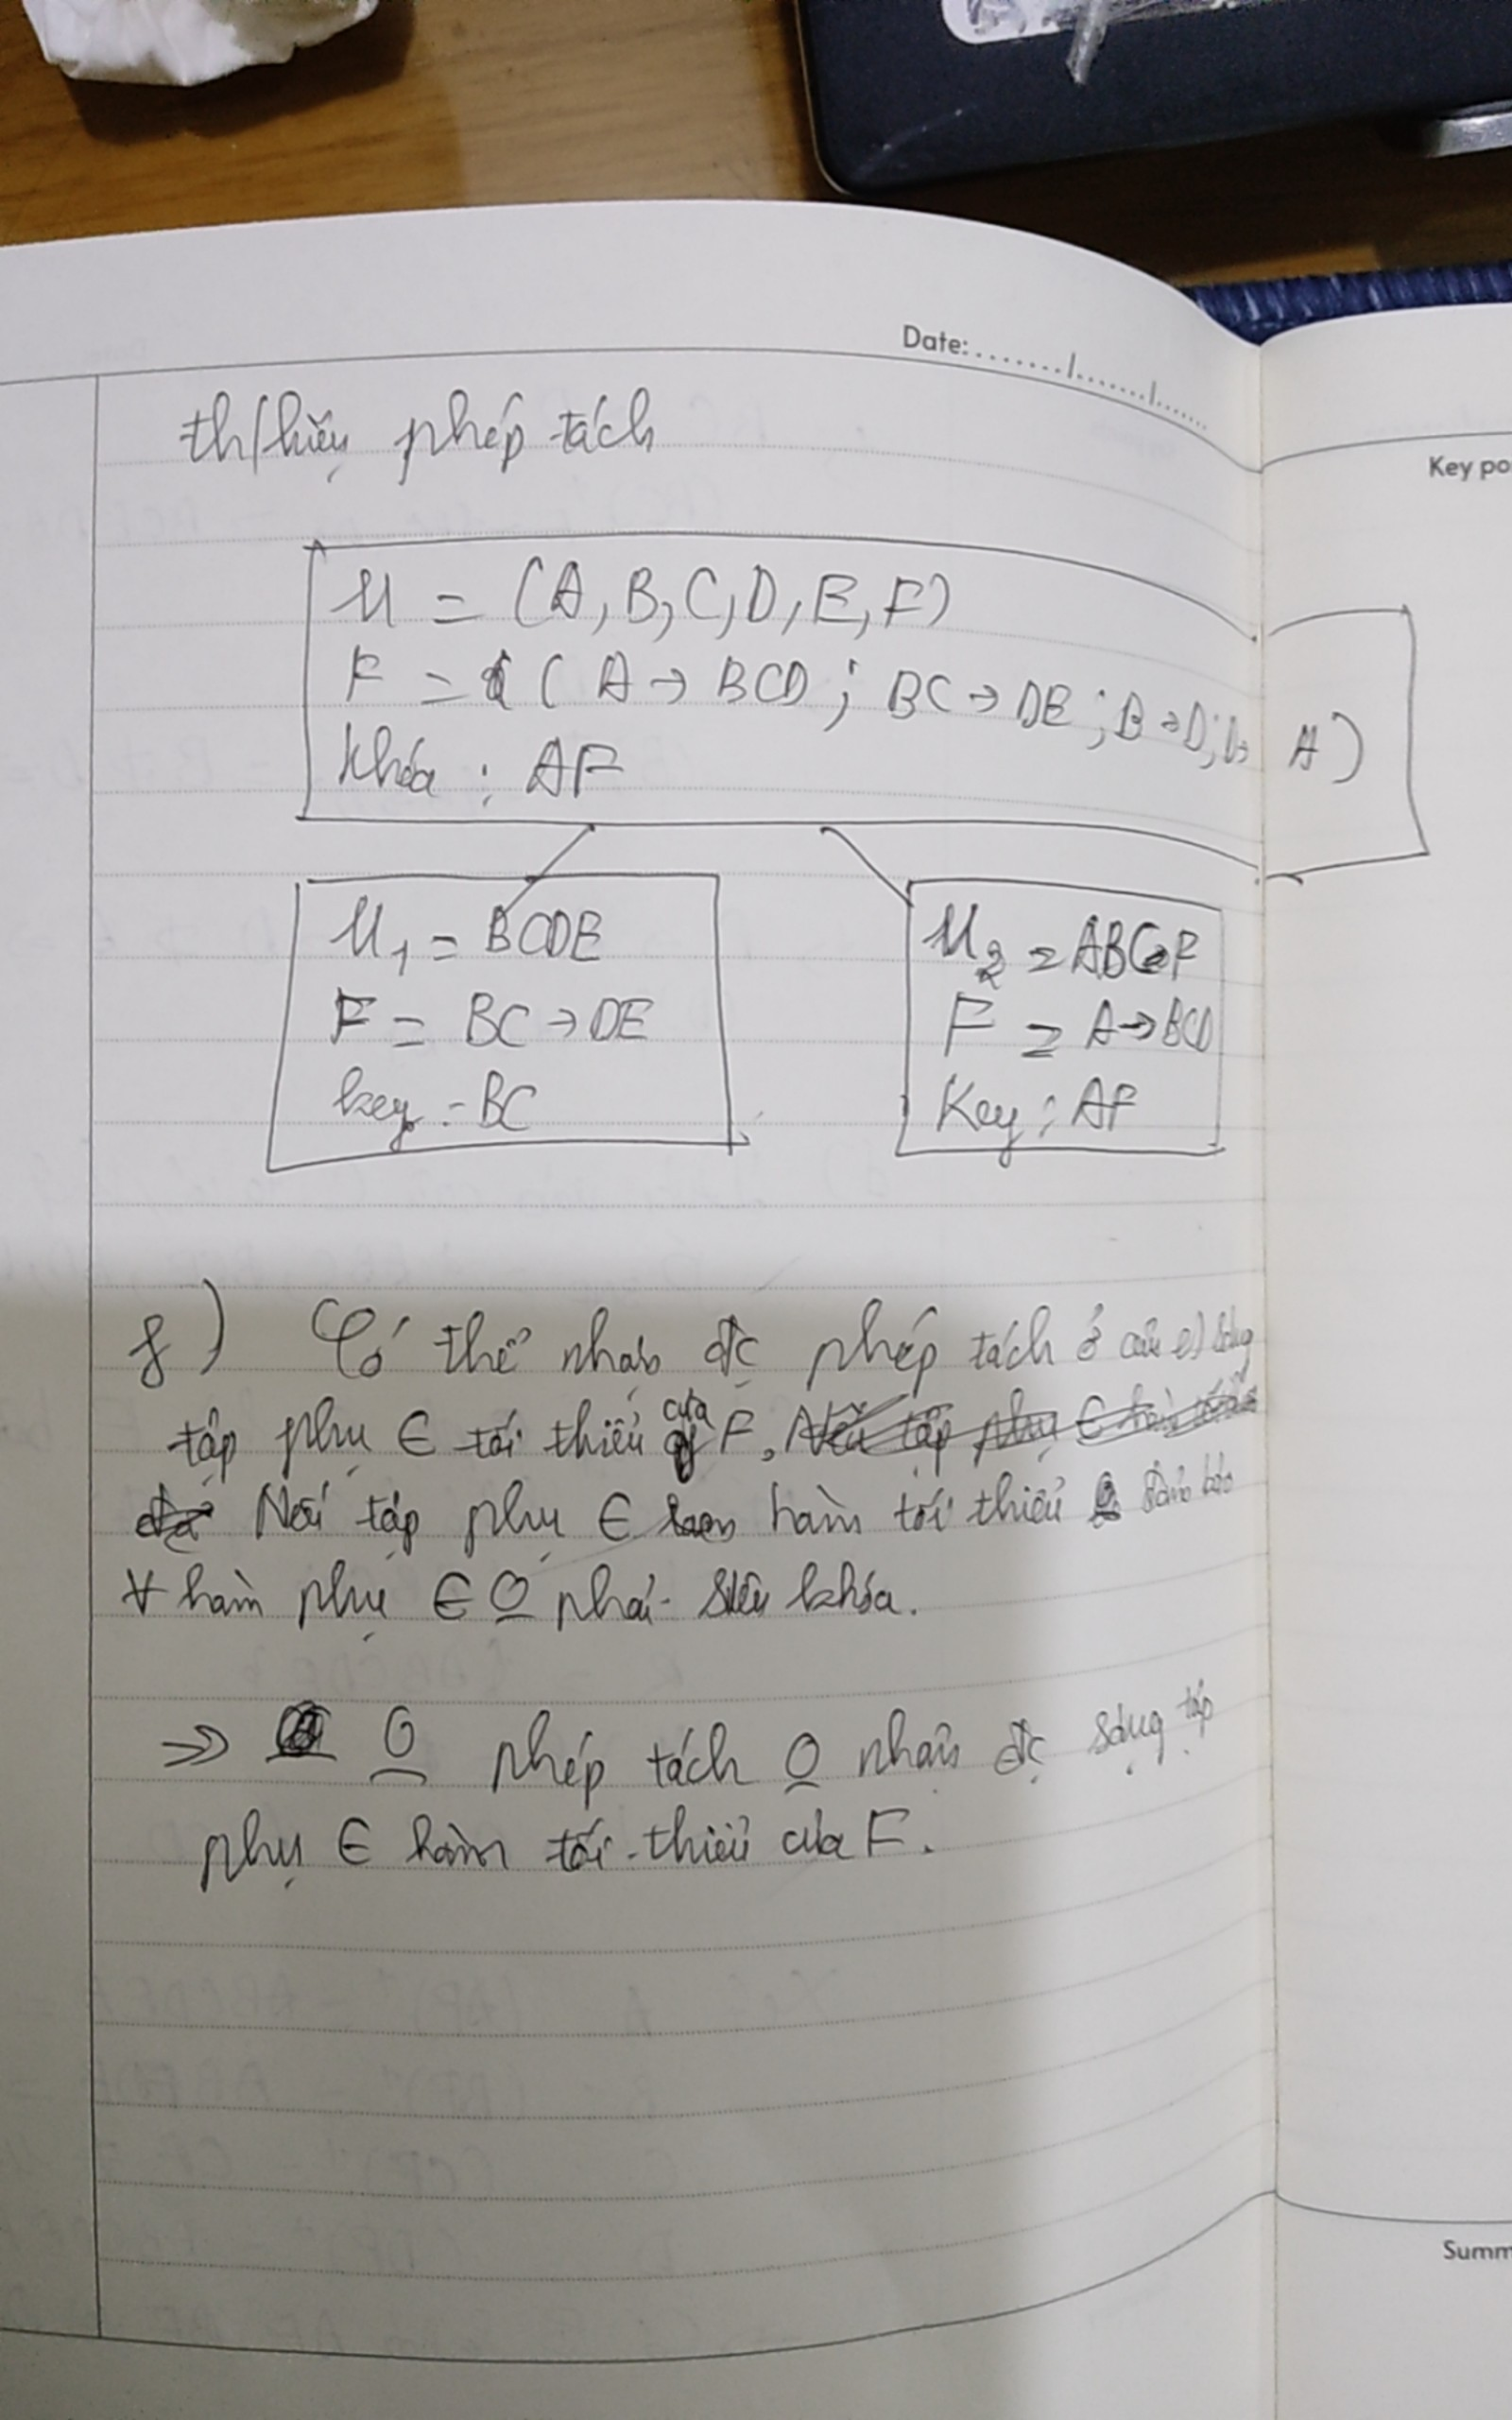 Date:......./......./......
Key po
th/hiện phép tách
U = (A, B, C, D, E, F)
F = ( A → BCD ; BC → DE ; B → D; D → A )
khóa : AF
U1 = BCDE
F = BC → DE
key = BC
U2 = ABCF
F = A → BCD
Key : AF
f) Có thể nhận đc phép tách ở câu e) sdụng
tập phụ ∈ tối thiểu của F,
Nếu tập phụ ∈ hàm tối thiểu đảm bảo
∀ hàm phụ ∈ O phải siêu khóa.
=>> O phép tách O nhận đc sdụng tập
phụ ∈ hàm tối thiểu của F.
Summ